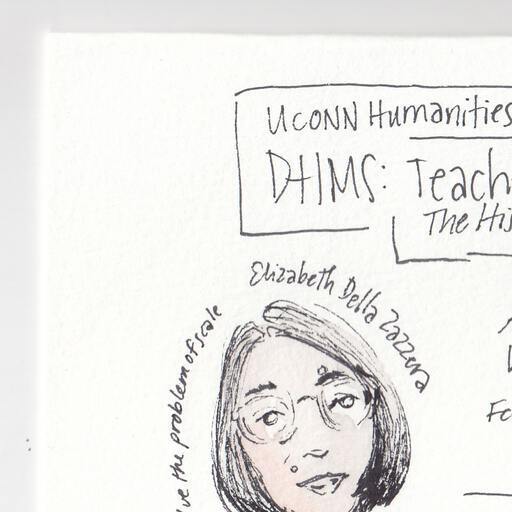 UCONN Humanities
DHMS: Teach
The His
Elizabeth Della Zazzera
ve the problem of scale
Fo